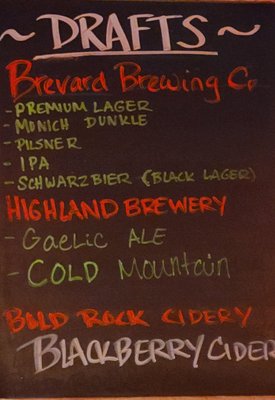 ~ DRAFTS ~
Brevard Brewing Co
- PREMIUM LAGER
- MUNICH DUNKLE
- PILSNER
- IPA
- SCHWARZBIER (BLACK LAGER)
HIGHLAND BREWERY
- GAELIC ALE
- COLD MOUNTAIN
BOLD ROCK CIDERY
BLACKBERRY CIDER